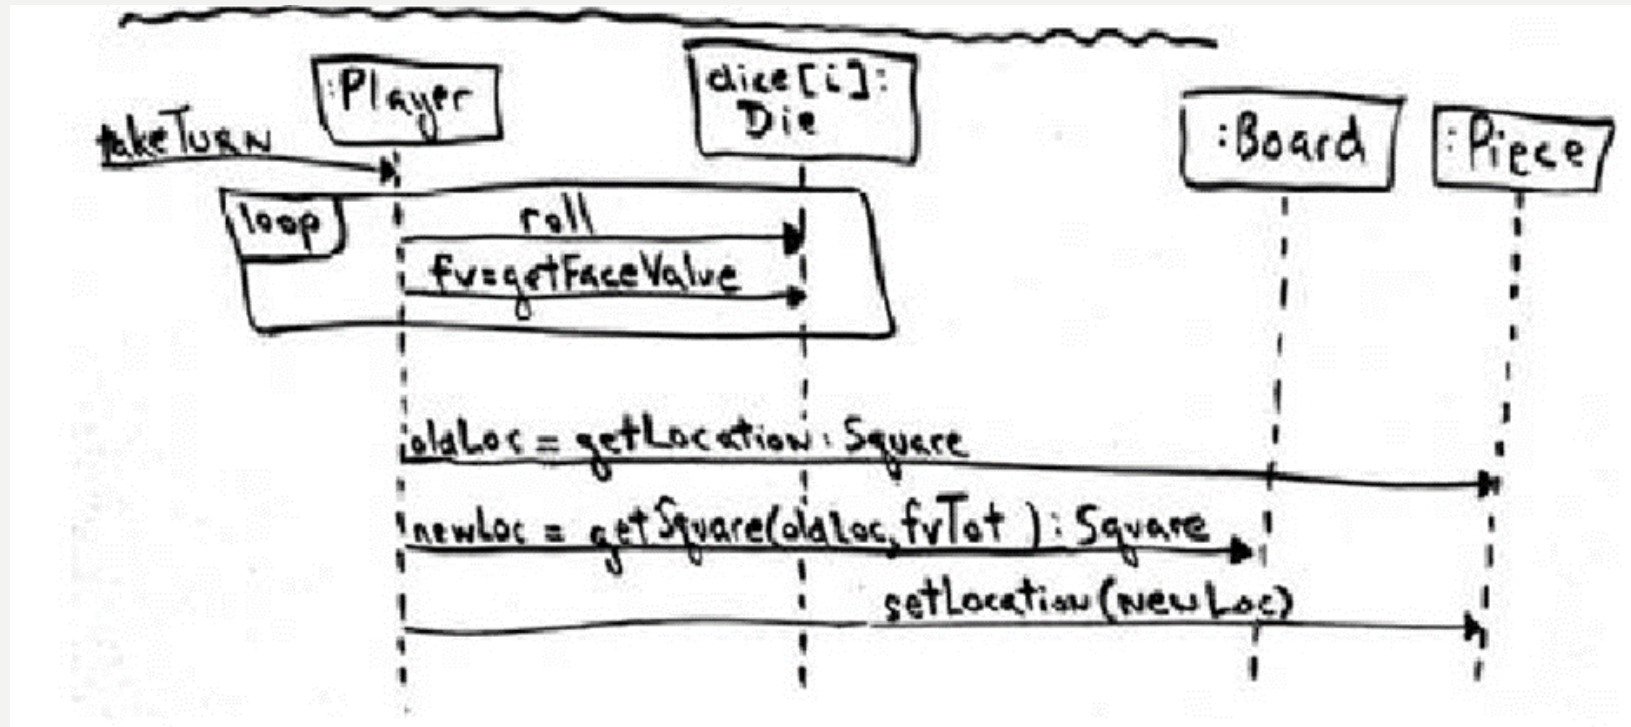 :Player
dice[i]:
Die
:Board
:Piece
takeTURN
loop
roll
fv=getFaceValue
oldLoc = getLocation: Square
newLoc = getSquare(oldLoc, fvTot ) : Square
setLocation(newLoc)